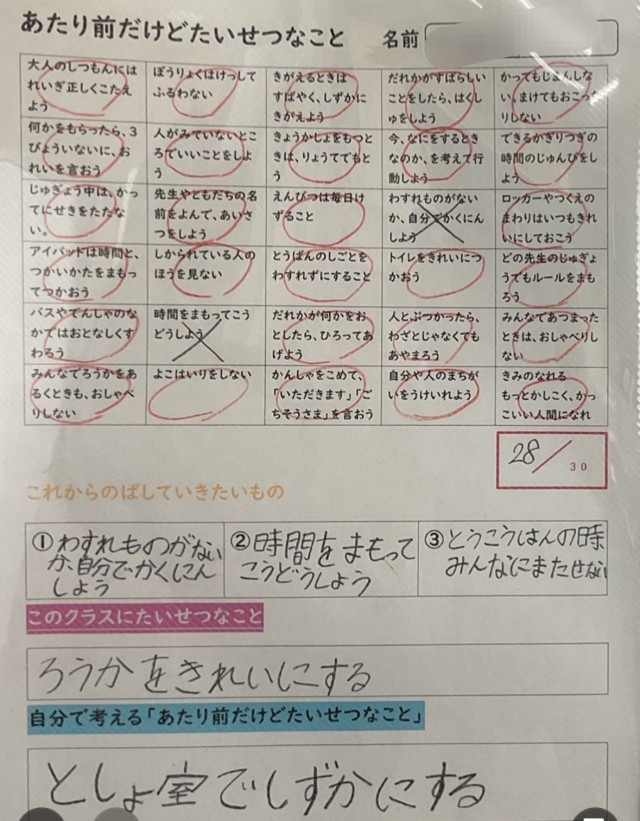 あたり前だけどたいせつなこと 名前
大人のしつもんには
れいぎ正しくこたえ
よう
ぼうりょくはけっして
ふるわない
きがえるときは
すばやく、しずかに
きがえよう
だれかがすばらしい
ことをしたら、はくし
ゅをしよう
かってもじまんしな
い。まけてもおこった
りしない
何かをもらったら、3
びょういないに、お
れいを言おう
人がみていないとこ
ろでいいことをしよ
う
きょうかしょをもつと
きは、りょうてでもと
う
今、なにをするとき
なのか、を考えて行
動しよう
できるかぎりつぎの
時間のじゅんびをし
よう
じゅぎょう中は、かっ
てにせきをたたな
い。
先生やともだちの名
前をよんで、あいさ
つをしよう
えんぴつは毎日け
ずること
わすれものがない
か、自分でかくにん
しよう
ロッカーやつくえの
まわりはいつもきれ
いにしておこう
アイパッドは時間と、
つかいかたをまもっ
てつかおう
しかられている人の
ほうを見ない
とうばんのしごとを
わすれずにすること
トイレをきれいにつ
かおう
どの先生のじゅぎょ
うでもルールをまも
ろう
バスやでんしゃのな
かではおとなしくす
わろう
時間をまもってこう
どうしよう
だれかが何かをお
としたら、ひろってあ
げよう
人とぶつかったら、
わざとじゃなくても
あやまろう
みんなであつまった
ときは、おしゃべりし
ない
みんなでろうかをあ
るくときも、おしゃべ
りしない
よこはいりをしない
かんしゃをこめて、
「いただきます」「ご
ちそうさま」を言おう
自分や人のまちが
いをうけいれよう
きみのなれる
もっとかしこく、かっ
こいい人間になれ
28/30
これからのばしていきたいもの
①わすれものがない
か、自分でかくにん
しよう
②時間をまもって
こうどうしよう
③とうこうはんの時
みんなにまたせない
このクラスにたいせつなこと
ろうかをきれいにする
自分で考える「あたり前だけどたいせつなこと」
としょ室でしずかにする